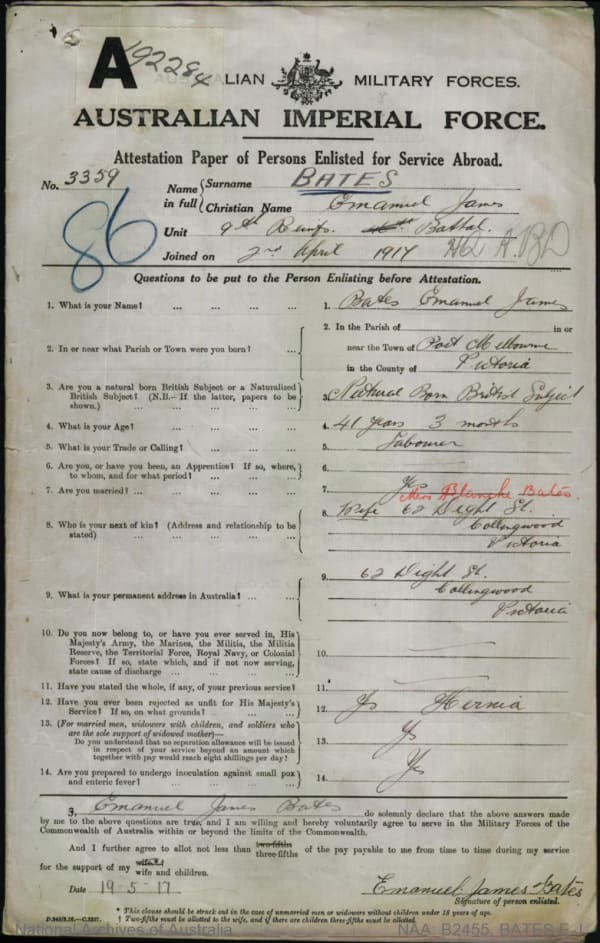 A 192284
LIAN MILITARY FORCES.
AUSTRALIAN IMPERIAL FORCE.
Attestation Paper of Persons Enlisted for Service Abroad.
No. 3359
86
Name in full { Surname BATES
Christian Name Emanuel James
Unit 9th Reinfs. Battal.
Joined on 2nd April 1917
Questions to be put to the Person Enlisting before Attestation.
1. What is your Name? ... ... ... 1. Bates Emanuel James
2. In or near what Parish or Town were you born? ... 2. In the Parish of in or
near the Town of Port Melbourne
in the County of Victoria
3. Are you a natural born British Subject or a Naturalized
British Subject? (N.B.—If the latter, papers to be
shown.) ... ... ... ... 3. Natural Born British Subject
4. What is your Age? ... ... ... 4. 41 years 3 months
5. What is your Trade or Calling? ... ... ... 5. Labourer
6. Are you, or have you been, an Apprentice? If so, where,
to whom, and for what period? ... ... ... 6.
7. Are you married? ... ... ... ... 7. Yes
Mrs Blanche Bates.
8. Who is your next of kin? (Address and relationship to be
stated) ... ... ... ... 8. Wife 62 Dight St.
Collingwood
Victoria
9. What is your permanent address in Australia? ... ... 9. 62 Dight St.
Collingwood
Victoria
10. Do you now belong to, or have you ever served in, His
Majesty's Army, the Marines, the Militia, the Militia
Reserve, the Territorial Force, Royal Navy, or Colonial
Forces? If so, state which, and if not now serving,
state cause of discharge ... ... ... 10.
11. Have you stated the whole, if any, of your previous service? 11.
12. Have you ever been rejected as unfit for His Majesty's
Service? If so, on what grounds? ... ... 12. Yes Hernia
13. (For married men, widowers with children, and soldiers who
are the sole support of widowed mother)—
Do you understand that no separation allowance will be issued
in respect of your service beyond an amount which
together with pay would reach eight shillings per day? 13. Yes
14. Are you prepared to undergo inoculation against small pox
and enteric fever? ... ... ... ... 14. Yes
I, Emanuel James Bates do solemnly declare that the above answers made
by me to the above questions are true, and I am willing and hereby voluntarily agree to serve in the Military Forces of the
Commonwealth of Australia within or beyond the limits of the Commonwealth.
And I further agree to allot not less than two-fifths three-fifths of the pay payable to me from time to time during my service
for the support of my wife* wife and children.
Date 19-5-17 Emanuel James Bates
Signature of person enlisted.
* This clause should be struck out in the case of unmarried men or widowers without children under 18 years of age.
† Two-fifths must be allotted to the wife, and if there are children three-fifths must be allotted.
National Archives of Australia NAA: B2455, BATES E J